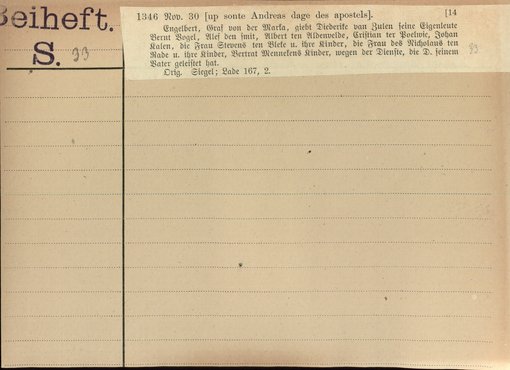 Beiheft.
S. 33
1346 Nov. 30 [up sonte Andreas dage des apostels]. [14
Engelbert, Graf von der Marka, giebt Diederike van Zulen seine Eigenleute
Bernt Vogel, Alef den smit, Albert ten Aldenvelde, Cristian ter Poelwic, Johan
Kalen, die Frau Stevens ten Bleke u. ihre Kinder, die Frau des Nicholaus ten
Rade u. ihre Kinder, Bertrat Mennekens Kinder, wegen der Dienste, die D. seinem
Vater geleistet hat.
Orig. Siegel; Lade 167, 2.
33